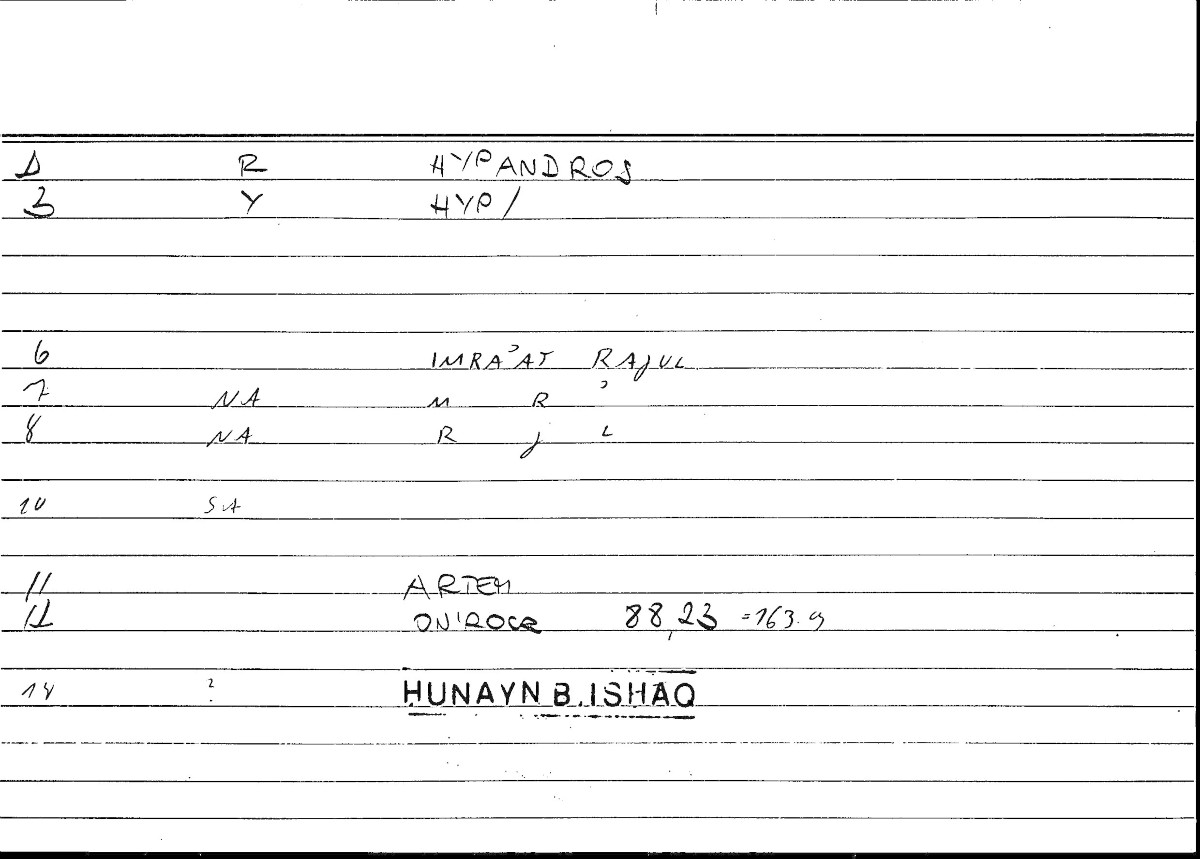 1 R HYPANDROS
3 Y HYP/
6 IMRA'AT RAJUL
7 NA M R '
8 NA R J L
10 SA
11 ARTEM
12 ONIROCR 88,23 =163.9
14 ? HUNAYN B.ISHAQ